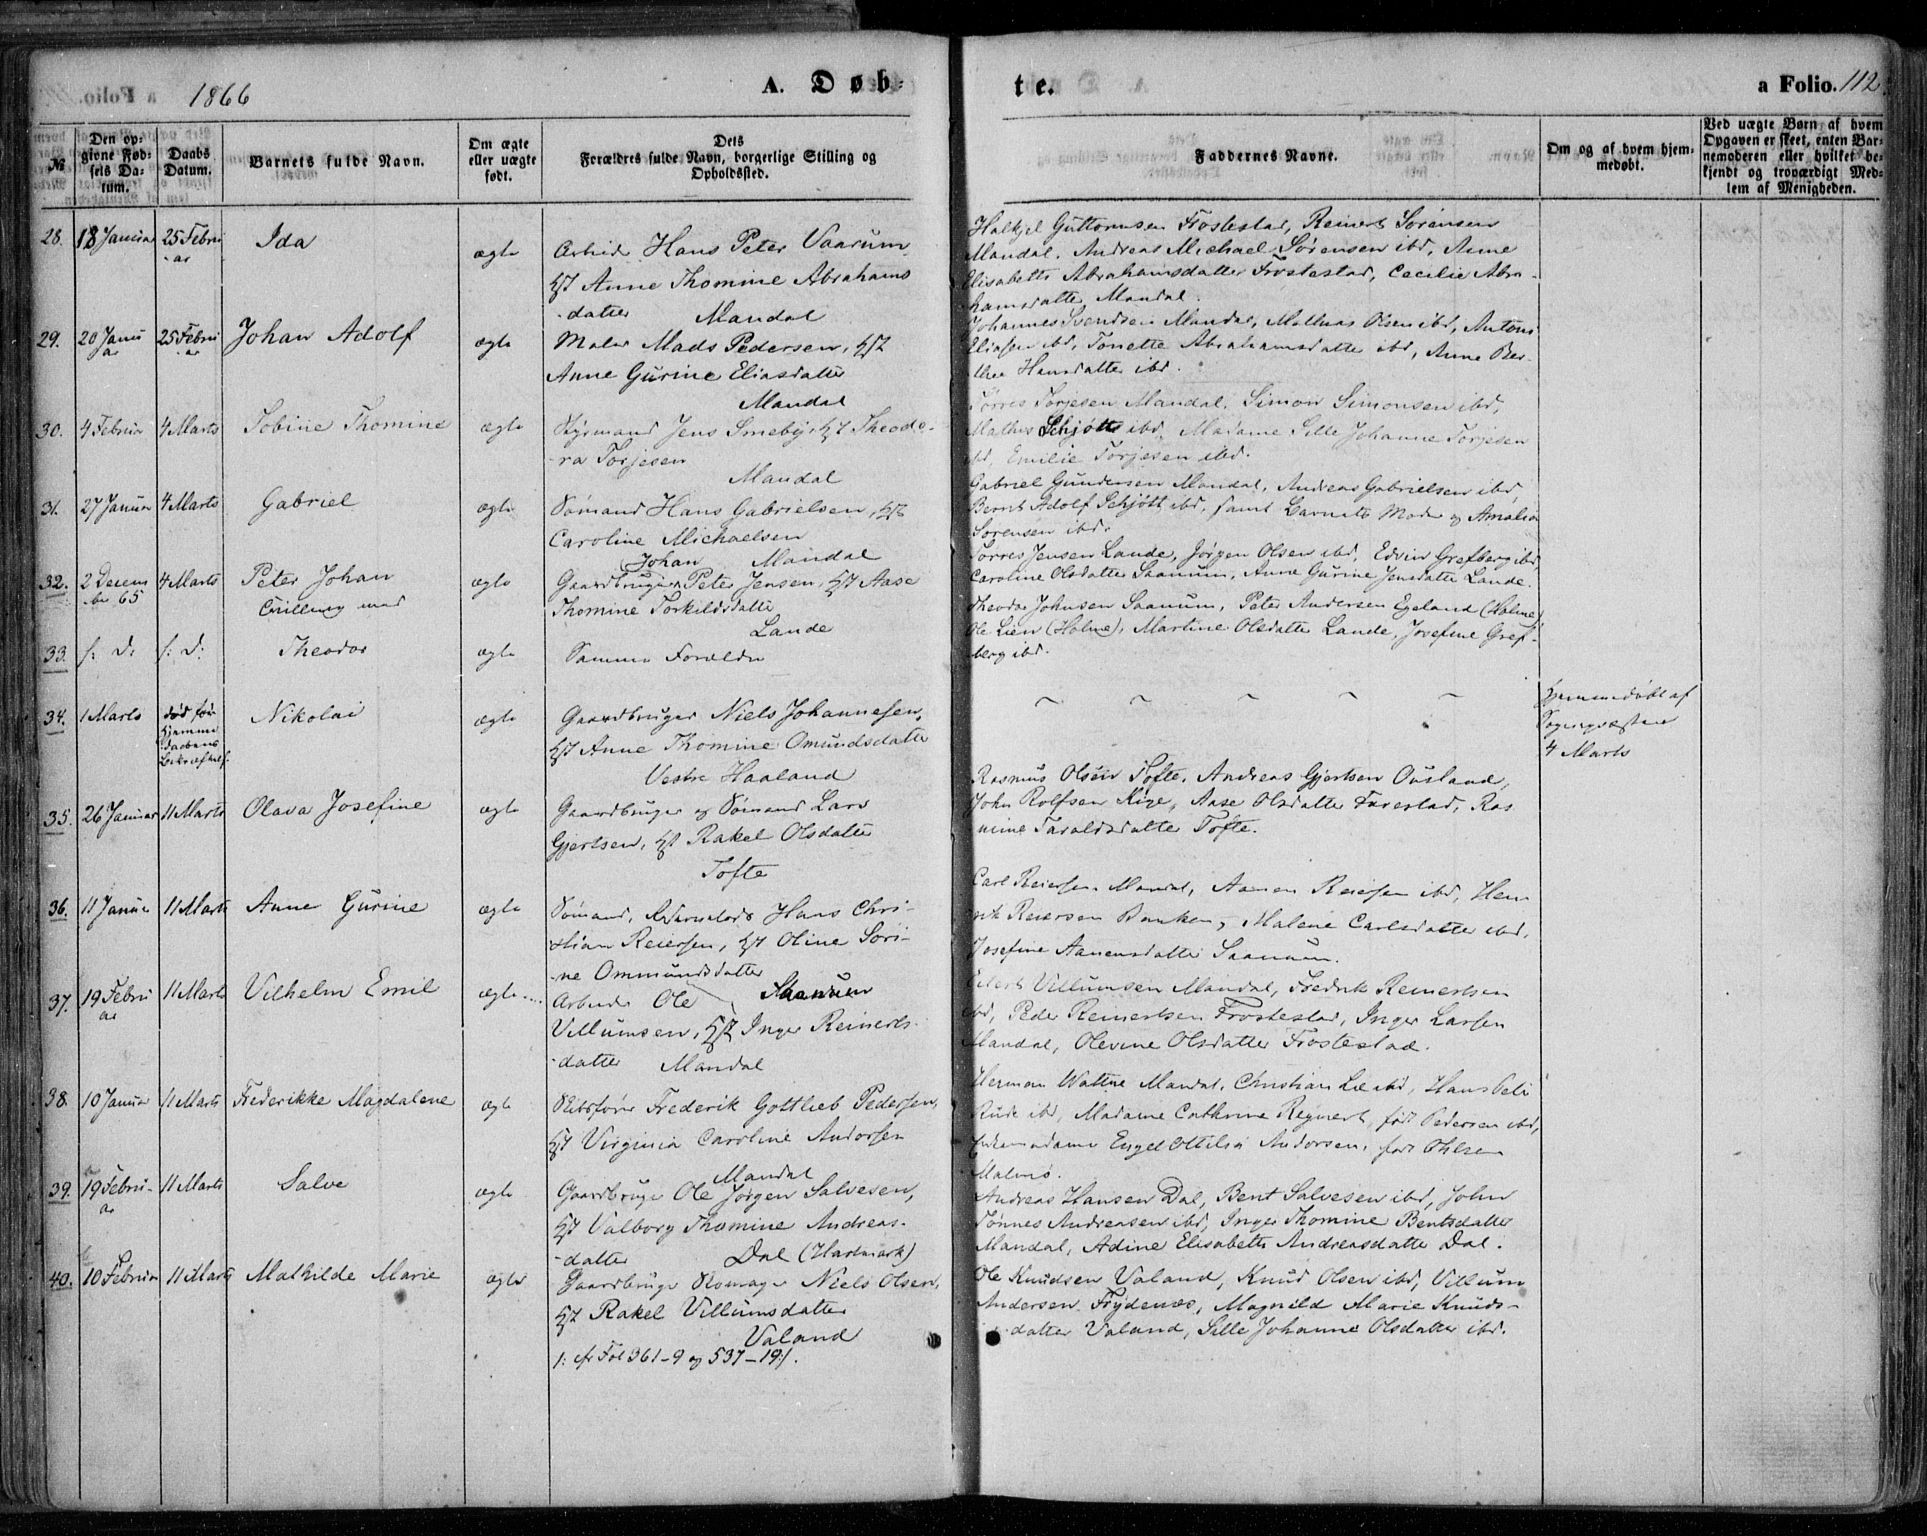 1866
A. Døb-
te.
a Folio. 112
№
Den op-
givne Fød-
sels Da-
tum.
Daabs
Datum.
Barnets fulde Navn.
Om ægte
eller uægte
født.
Dets
Forældres fulde Navn, borgerlige Stilling og
Opholdssted.
Faddernes Navne.
Om og af hvem hjem-
medøbt.
Ved uægte Børn af hvem
Opgaven er skeet, enten Bar-
nemoderen eller hvilket be-
kjendt og troværdigt Med-
lem af Menigheden.
28. 18 Januar 25 Febru
ar
Ida
ægte
Arbeider Hans Peter Vaarum
Hst Anne Thomine Abrahams
-datter Mandal
Halkjel Guttormsen Frostestad, Reinert Sørensen
Mandal, Andreas Michael Sørensen ibd, Anne
Elisabeth Abrahamsdatter Frostestad, Cecilie Abra-
hamsdatter Mandal.
29. 20 Janu
ar
25 Febru
ar
Johan Adolf
ægte
Maler Mads Pedersen, Hst
Anne Gurine Eliasdatter
Mandal
Johannes Svendsen Mandal, Mathias Olsen ibd, Antoni
Eliasen ibd, Tonette Abrahamsdatter ibd, Anne Ber-
thea Hansdatter ibd.
30. 4 Februar 4 Marts
Tobine Thomine
ægte
Styrmand Jens Smeby, Hst Theodo-
-ra Torjesen
Mandal
Tørres Torjesen Mandal, Simon Simonsen ibd,
Mathis Schjøtt ibd, Madame Sille Johanne Torjesen
ibd, Emilie Torjesen ibd.
31. 27 Januar 4 Marts
Gabriel
ægte
Sømand Hans Gabrielsen, Hst
Caroline Michaelsen
Mandal
Gabriel Gundersen Mandal, Andreas Gabrielsen ibd,
Bernt Adolf Schjøtt ibd, samt Barnets Moder og Amalia
Sørensen ibd.
32. 2 Decem
ber 65
4 Marts
Peter Johan
Tvilling med
ægte
Johan
Gaardbruger Peter Jensen, Hst Aase
Thomine Torkildsdatter
Lande
Tørres Jensen Lande, Jørgen Olsen ibd, Edvin Grefberg ibd
Caroline Olsdatter Saanum, Anne Gurine Jensdatter Lande.
33. s: D: s: D:
Theodor
ægte
Samme Forældre
Theodor Johnsen Saanum, Peter Andersen Egeland (Holme)
Ole Lien (Holme), Martine Olsdatter Lande, Josefine Gref-
berg ibd.
34. 1 Marts
død før
Hjemme
daabens
Bekræftelse
Nikolai
ægte
Gaardbruger Niels Johannesen,
Hst Anne Thomine Omundsdatter
Vestre Haaland
Hjemmedøbt af
Sognepræsten
4 Marts
35. 26 Januar 11 Marts
Olava Josefine
ægte
Gaardbruger og Sømand Lars
Gjertsen, Hst Rakel Olsdatter
Tofte
Rasmus Olsen Tofte, Andreas Gjertsen Ousland,
John Rolfsen Kige, Aase Olsdatter Farestad, Ras
mine Taraldsdatter Tofte.
36. 11 Januar 11 Marts
Anne Gurine
ægte
Sømand, Hans Chri-
stian Reiersen, Hst Oline Sori-
-ne Ommundsdatter
Saanum
Carl Reiersen Mandal, Aanen Reiersen ibd, Hen
rik Reiersen Banken, Malene Carlsdatter ibd,
Josefine Aanensdatter Saanum.
37. 19 Febru
ar
11 Marts
Vilhelm Emil
ægte
Arbeider Ole
Villumsen, Hst Inger Reinerts-
-datter Mandal
Eilert Villumsen Mandal, Fredrik Reinertsen
ibd, Peder Reinertsen Frostestad, Inger Larsen
Mandal, Olevine Olsdatter Frostestad.
38. 10 Januar 11 Marts
Frederikke Magdalene
ægte
Skibsfører Frederik Gottlieb Pedersen,
Hst Virginia Caroline Andorsen
Mandal
Herman Wattne Mandal, Christian Lie ibd, Hans Peter
Rude ibd, Madame Cathrine Regnert, født Pedersen ibd,
Enkemadame Engel Ottilia Andorsen, født Ohlsen
Malmø.
39. 19 Febru-
ar
11 Marts
Salve
ægte
Gaardbruger Ole Jørgen Salvesen,
Hst Valborg Thomine Andreas-
-datter Dal (Hartmark)
Andreas Hansen Dal, Bent Salvesen ibd, John
Tønnes Andreasen ibd, Inger Thomine Bentsdatter
Mandal, Adine Elisabeth Andreasdatter Dal.
40. 10 Februar 11 Marts
Mathilde Marie
ægte
Gaardbruger Niels Olsen,
Hst Rakel Villumsdatter
Valand
/: cfr Fol 361-9 og 537-19:/.
Ole Knudsen Valand, Knud Olsen ibd, Villum
Andersen Frydenæs, Magnild Marie Knuds-
-datter Valand, Sille Johanne Olsdatter ibd.